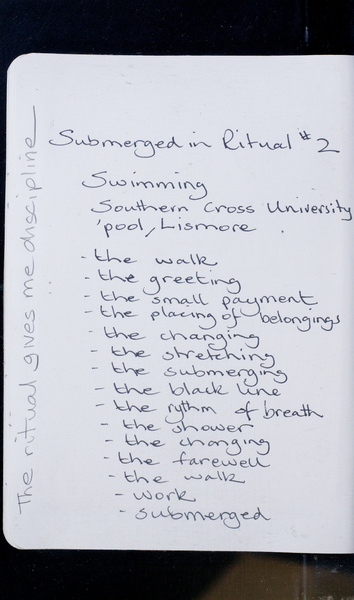 Submerged in Ritual #2
Swimming
Southern Cross University
'pool, Lismore
- the walk
- the greeting
- the small payment
- the placing of belongings
- the changing
- the stretching
- the submerging
- the black line
- the rythm of breath
- the shower
- the changing
- the farewell
- the walk
- work
- submerged
The ritual gives me discipline